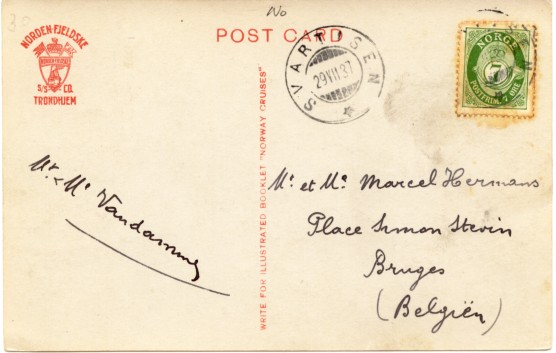 30
No
NORDENFJELDSKE
NORDENFJELDSKE
S/S CO.
TRONDHJEM
POST CARD
SVARTISEN
29 VII 37
NORGE
7
POSTFRIM. 7 ØRE
WRITE FOR ILLUSTRATED BOOKLET "NORWAY CRUISES"
Mr & Me Vandamme
Mr et Me Marcel Hermans
Place Simon Stevin
Bruges
(Belgiën)